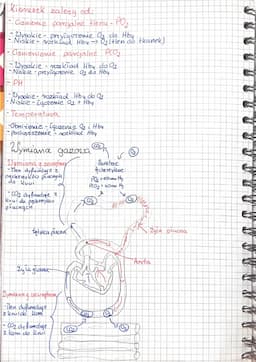 Kierunek zależy od:
- Ciśnienie parcjalne tlenu - PO₂
- Wysokie - przyłączenie O₂ do Hb
- Niskie - rozkład Hb → O₂ (tlen do tkanek)
- Ciśnienie parcjalne PCO₂
- Wysokie - rozkład Hb do O₂
- Niskie - przyłączenie O₂ do Hb
- PH
- Wysokie - rozkład Hb do O₂
- Niskie - łączenie O₂ + Hb
- Temperatura
- Obniżenie - łączenie O₂ i Hb
- podwyższenie - rozkład Hb
Wymiana gazowa
Wymiana zewnętrzna
- Tlen dyfunduje z
pęcherzyków płucnych
do krwi
- CO₂ dyfunduje z
krwi do pęcherzyków
płucnych
O₂
Powietrze
pęcherzykowe
O₂
O₂
Żyła płucna
Aorta
Żyła główna
Wymiana wewnętrzna
- Tlen dyfunduje
z krwi do
- CO₂ dyfunduje
z do krwi
O₂
O₂